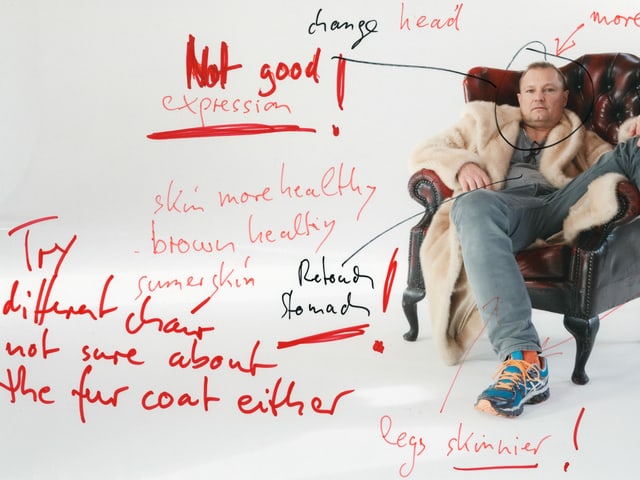 change head
more
Not good !
expression
skin more healthy
brown healthy
sumerskin
Retouch
Stomach !
Try
different chair
not sure about
the fur coat either
legs skinnier !